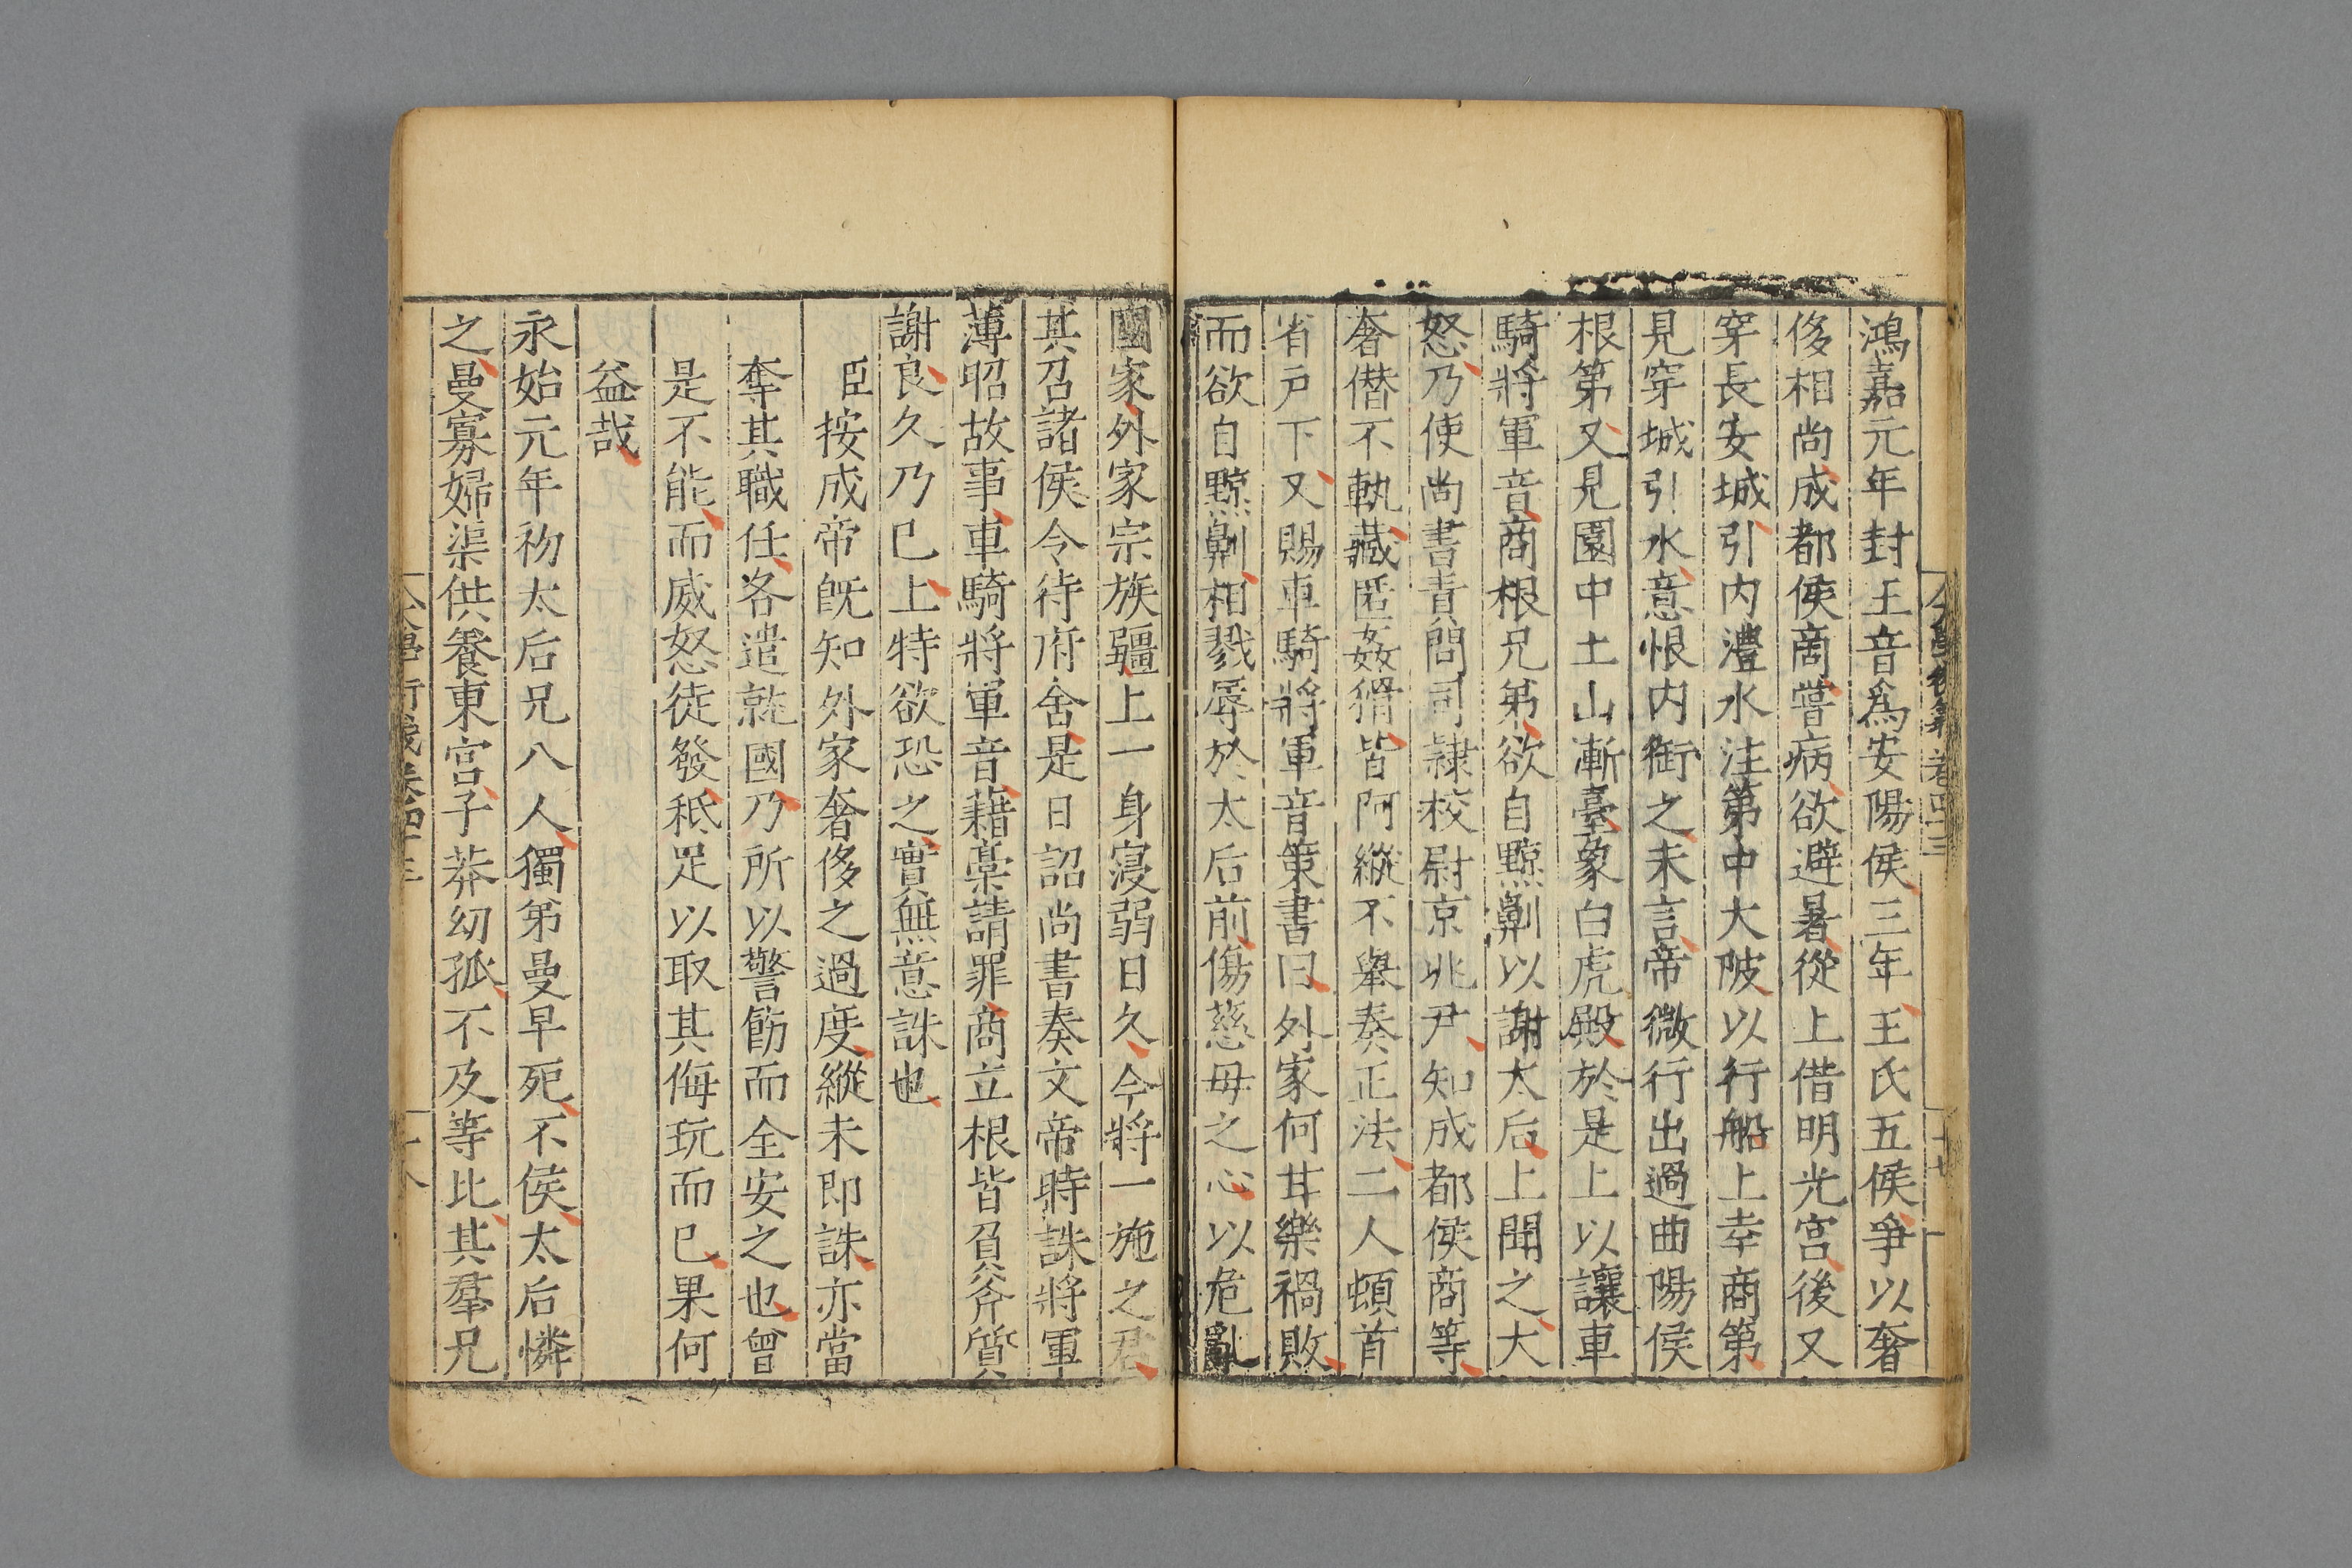 鴻嘉元年封王音爲安陽侯三年王氏五侯爭以奢
侈相尚成都侯商嘗病欲避暑從上借明光宮後又
穿長安城引内澧水注第中大陂以行船上幸商第
見穿城引水意恨内銜之未言帝微行出過曲陽侯
根第又見園中土山漸臺象白虎殿於是上以讓車
騎將軍音商根兄弟欲自黥劓以謝太后上聞之大
怒乃使尚書責問司隷校尉京兆尹知成都侯商等
奢僣不軌藏匿姦猾皆阿縱不舉奏正法二人頓首
省戸下又賜車騎將軍音策書曰外家何甘樂禍敗
而欲自黥劓相戮辱於太后前傷慈母之心以危亂
國家外家宗族彊上一身寖弱日久今將一施之君
其召諸侯令待府舍是日詔尚書奏文帝時誅將軍
薄昭故事車騎將軍音藉槀請罪商立根皆負斧質
謝良久乃已上特欲恐之實無意誅也
臣按成帝旣知外家奢侈之過度縱未即誅亦當
奪其職任各遣就國乃所以警飭而全安之也曾
是不能而威怒徒發秪足以取其侮玩而已果何
益哉
永始元年初太后兄八人獨弟曼早死不侯太后憐
之曼寡婦渠供養東宮子莽幼孤不及等比其羣兄
大學衍義卷四十三
十八